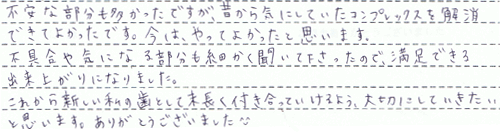 不安な部分も多かったですが、昔から気にしていたコンプレックスを解消
できてよかったです。今は、やってよかったと思います。
不具合や気になる部分も細かく聞いて下さったので、満足できる
出来上がりになりました。
これから新しい私の歯として末長く付き合っていけるよう、大切にしていきたい
と思います。ありがとうございました